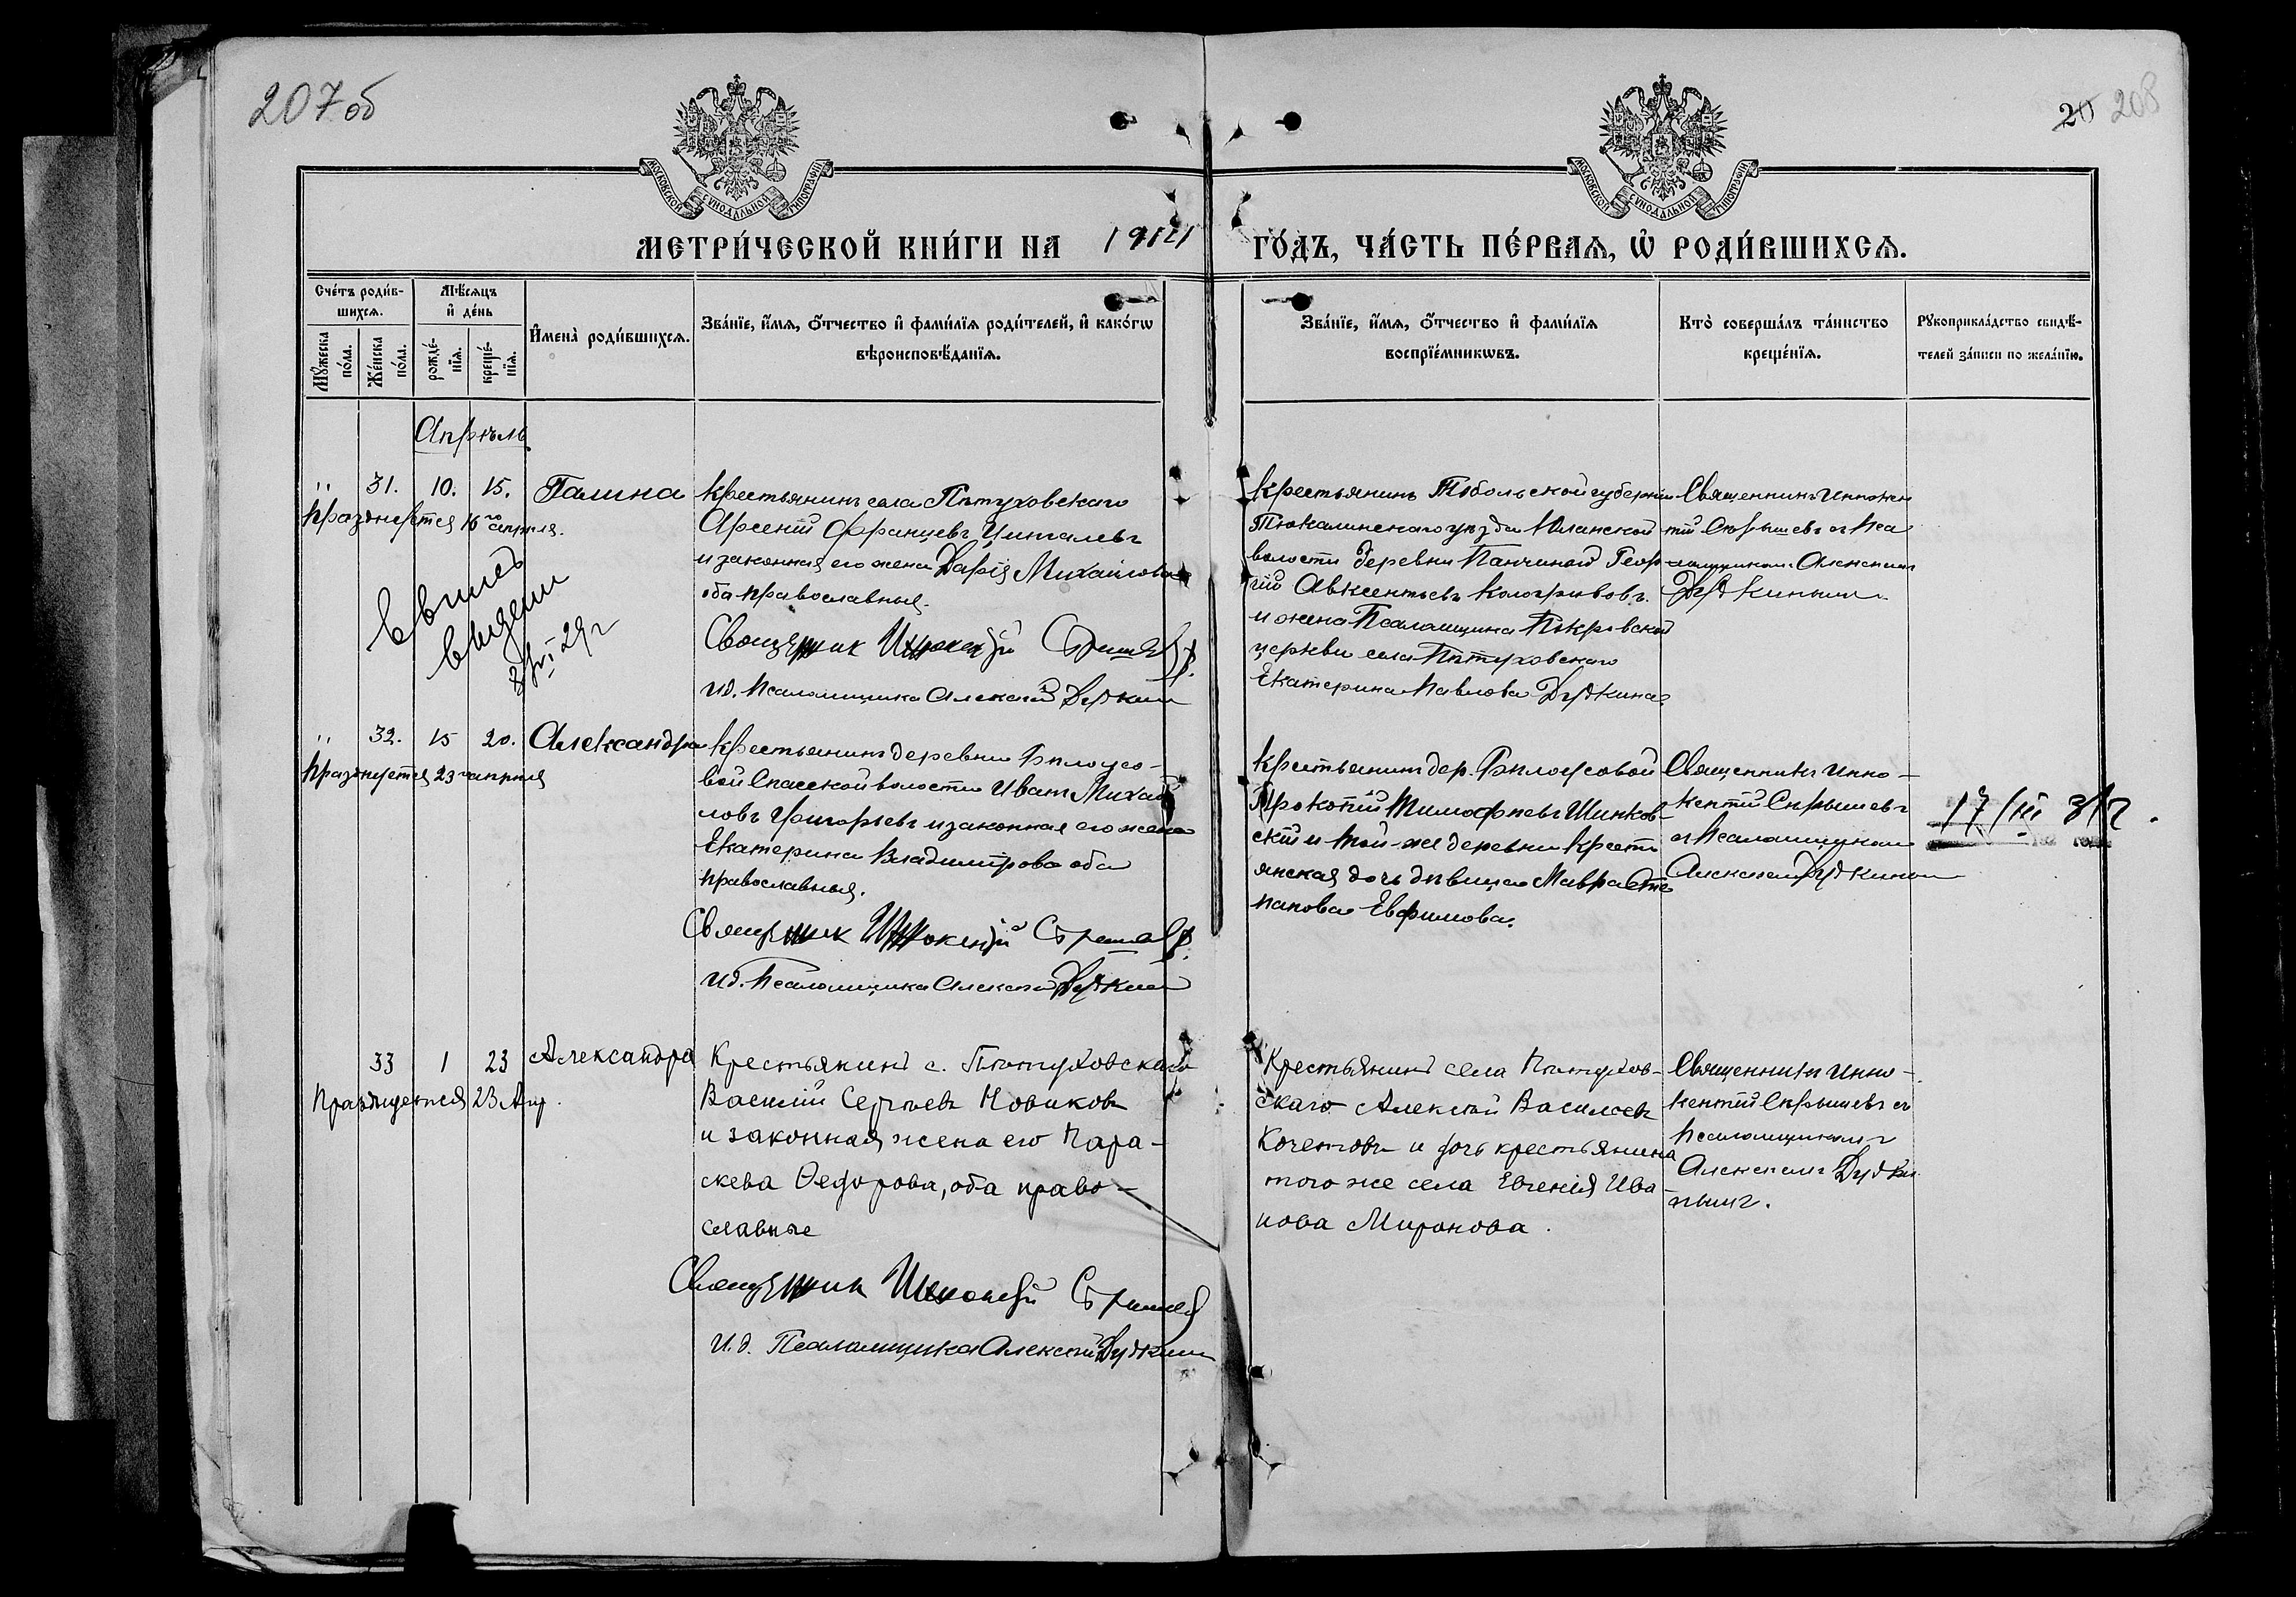 207об
20 208
МОСКОВСКОЙ СѴНОДАЛЬНОЙ ТИПОГРАФІИ
МОСКОВСКОЙ СѴНОДАЛЬНОЙ ТИПОГРАФІИ
МЕТРИ́ЧЕСКОЙ КНИ́ГИ НА
ГО́ДЪ, ЧА́СТЬ ПЕ́РВАЯ, Ѡ҆ РОДИ́ВШИХСЯ.
Сче́тъ роди́в-
шихся.
Мѣ́сяцъ
и҆ де́нь
Мꙋ́жеска по́ла.
Же́нска по́ла.
рожде́-
нїя.
креще́-
нїя.
И҆мена̀ роди́вшихся.
Зва́нїе, и҆́мя, ѻ҆́тчество и҆ фами́лїя роди́телей, и҆ како́гѡ
вѣроисповѣ́данїя.
Зва́нїе, и҆́мя, ѻ҆́тчество и҆ фами́лїя
воспрїе́мникѡвъ.
Кто̀ соверша́лъ та́инство
креще́нїя.
Рꙋкоприкла́дство свидѣ́-
телей за́писи по жела́нїю.
Апрѣль
" 31. 10. 15. Галина
Празднуется 16го апрѣля.
Крестьянинъ села Пѣтуховскаго
Арсеній Францевъ
и законная его жена Дарія Михаилова
оба православные.
Священник Иннокентій
И.д. Псаломщика Алексѣй Дудкин
Крестьянинъ Тобольской губерніи
Тюкалинскаго уѣзда Юланской
волости деревни Панчиной Геор-
гій Авксентьевъ Кологривовъ
и жена Псаломщика Покровской
церкви села Пѣтуховскаго
Екатерина Павлова Дудкина.
Священникъ Иннокен
тій Сѣрышевъ съ Пса
ломщикомъ Алексѣемъ
Дудкинымъ.
" 32. 15 20. Александра
Празднуется 23го апрѣля
Крестьянинъ деревни Бѣлоусо-
вой Спасской волости Иванъ Михай
ловъ Григорьевъ и законная его жена
Екатерина Владимірова оба
православные.
Священник Иннокентій
И.д. Псаломщика Алексѣй Дудкин
Крестьянинъ дер. Бѣлоусовой
Прокопій Тимофѣевъ Шинков-
скій и той-же деревни Крестья
янская дочь дѣвица Мавра Сте
панова Евфимова.
Священникъ Инно-
кентій Сѣрышевъ
съ Псаломщикомъ
Алексѣемъ Дудкинымъ
17/III 31г.
33 1 23 Александра
Празднуется 23 Апр.
Крестьянинъ с. Пѣтуховскаго
Василій Сергѣевъ Новиковъ
и законная жена его Пара-
скева Ѳедорова, оба право-
славные
Священник Иннокентій
И.д. Псаломщика Алексѣй Дудкин
Крестьянинъ села Пѣтухов-
скаго Алексѣй Васильевъ
Кочетовъ и дочь крестьянина
того же села Евгенія Ива
нова Миронова.
Священникъ Инно-
кентій Сѣрышевъ съ
Псаломщикомъ
Алексѣемъ Дудки
нымъ.